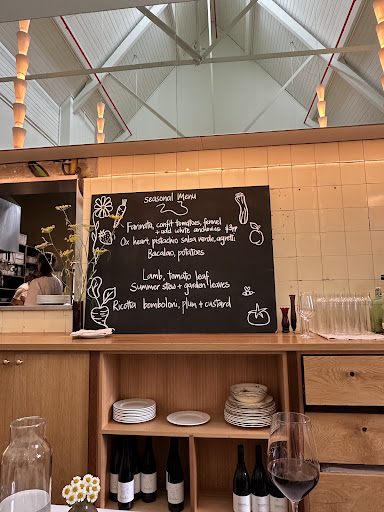 seasonal menu
Farinata, confit tomatoes, fennel
+ add white anchovies $4pp
Ox heart, pistachio salsa verde, agretti
Bacalao, potatoes
Lamb, tomato leaf
Summer stew + garden leaves
Ricotta bomboloni, plum + custard